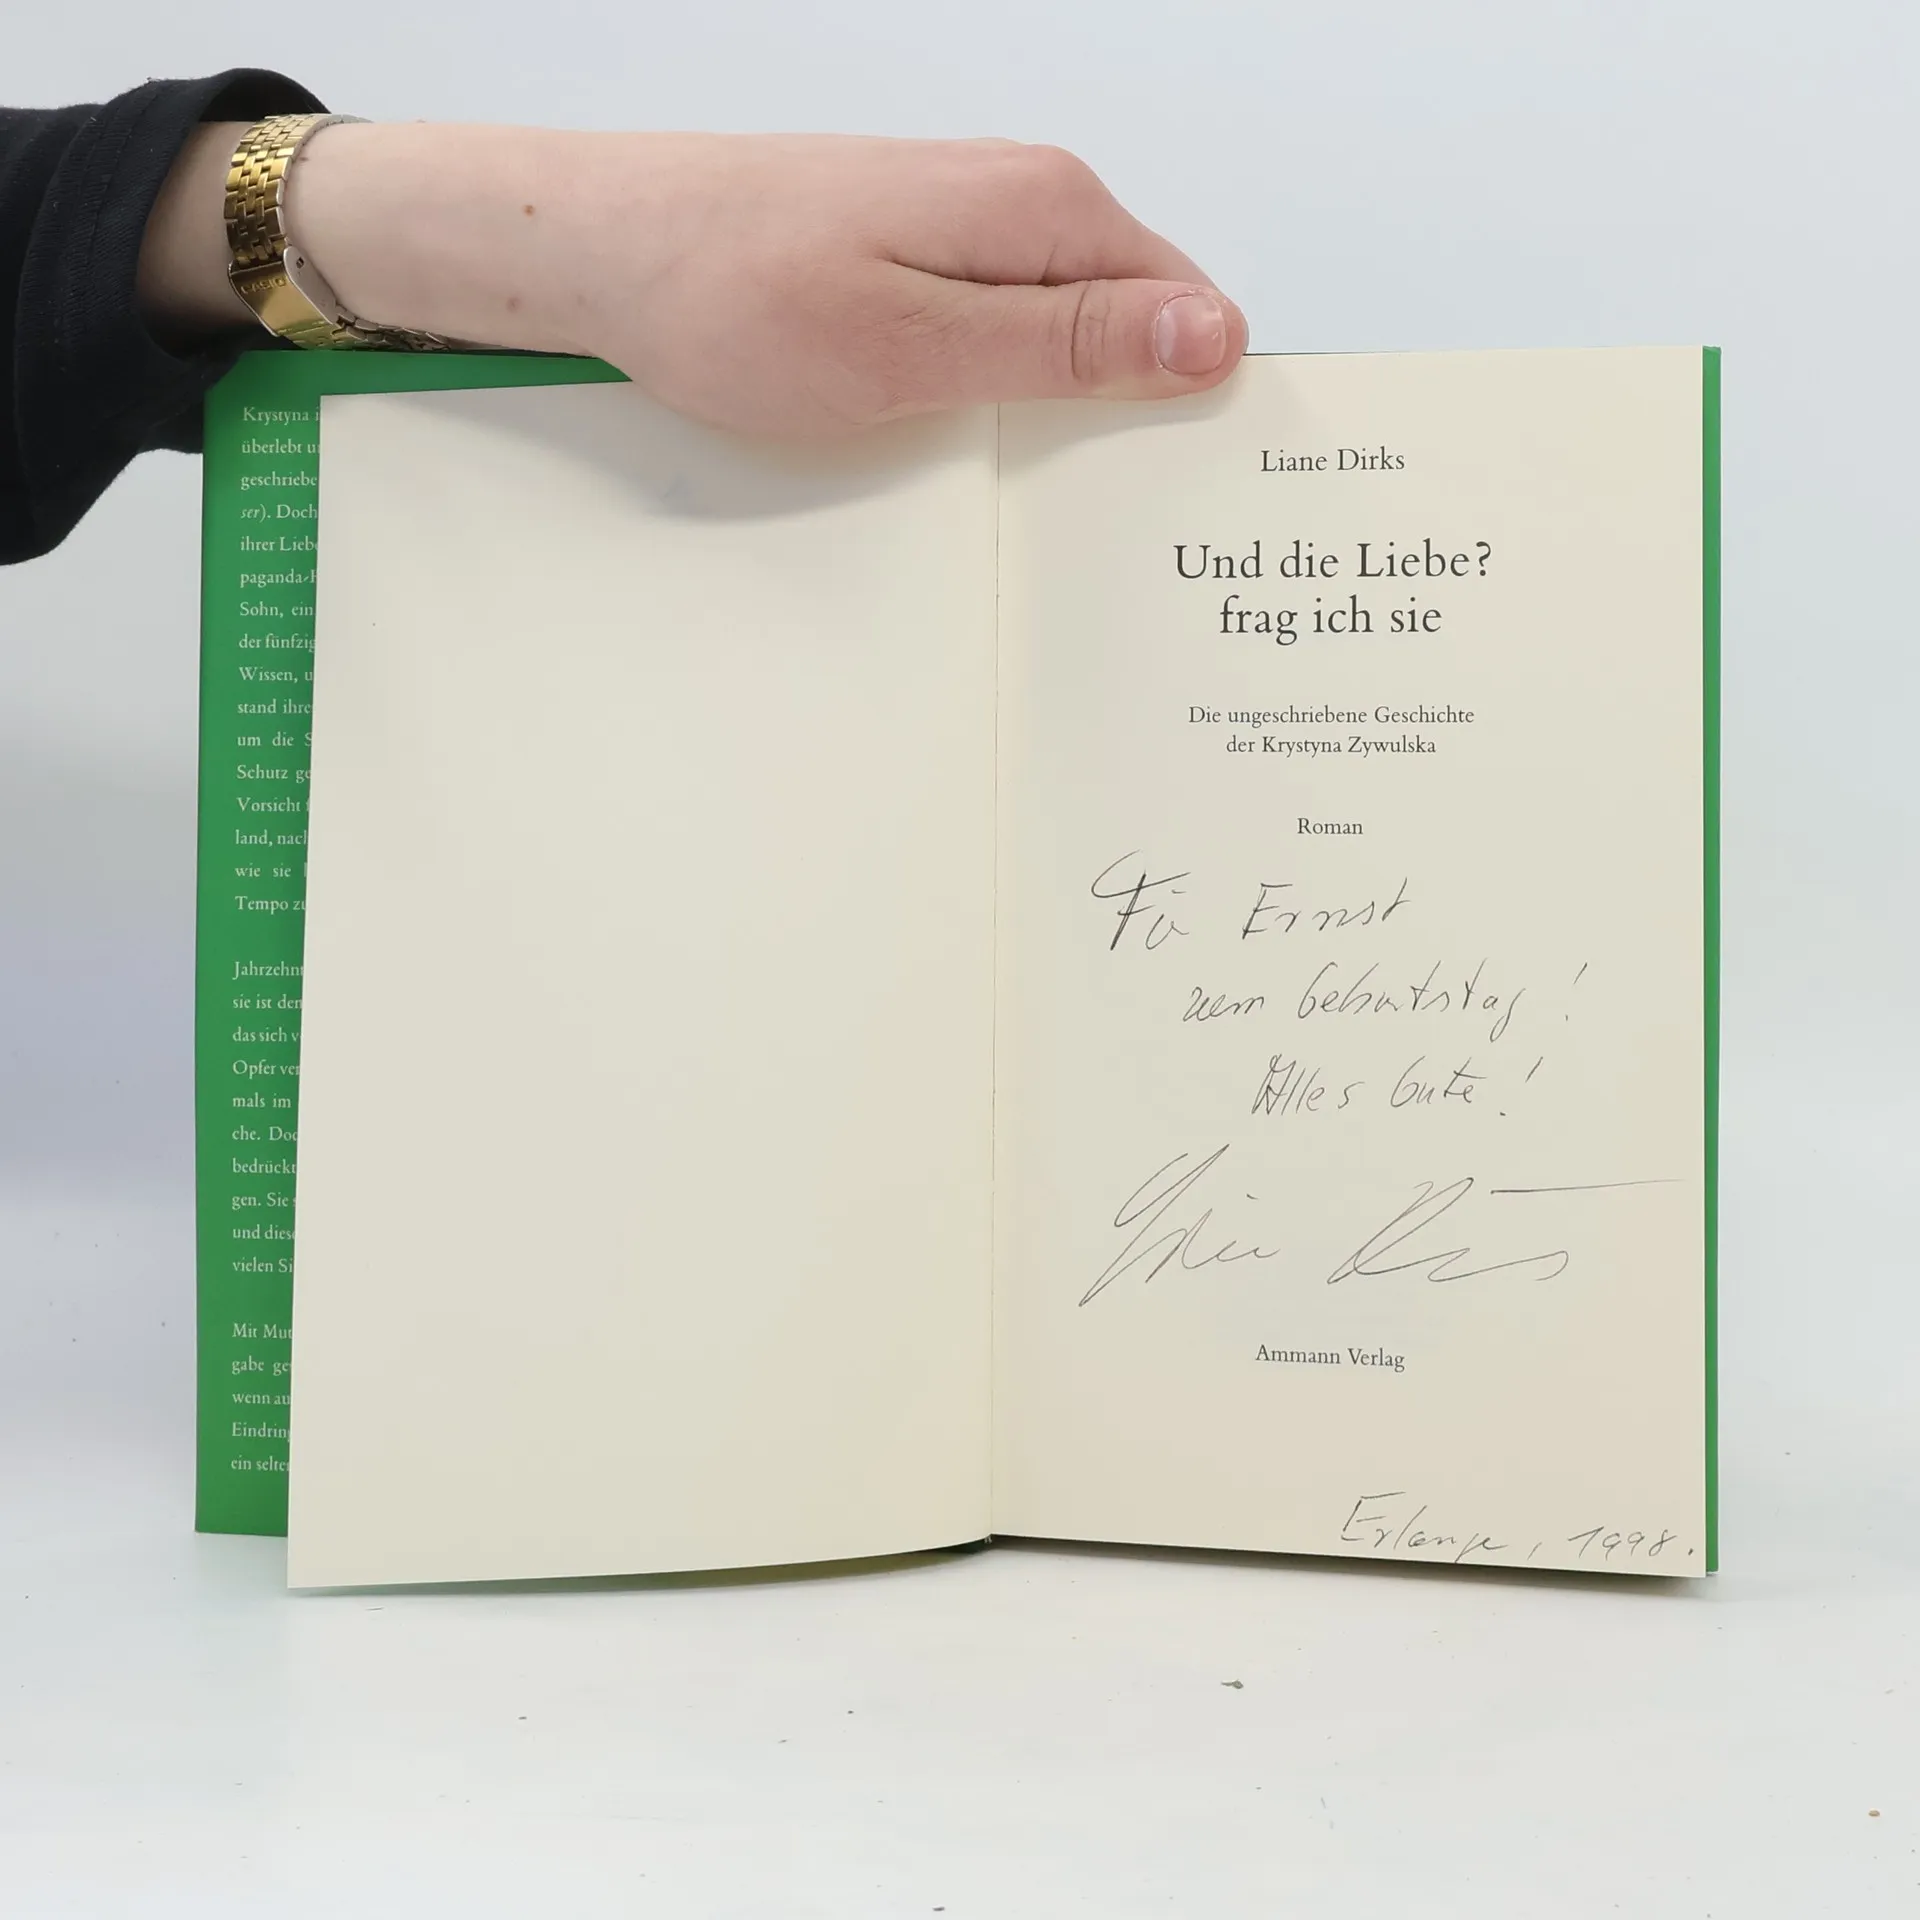 CASIO
Krystyna i
überlebt u
geschriebe
ser). Doch
ihrer Liebe
paganda-
Sohn, ein
der fünfzig
Wissen, u
stand ihre
um die S
Schutz ge
Vorsicht
land, nach
wie sie
Tempo zu
Jahrzehnt
sie ist den
das sich v
Opfer ver
mals im
che. Doc
bedrückt
gen. Sie
und diese
vielen Si
Mit Mut
gabe ge
wenn au
Eindring
ein selte
Liane Dirks
Und die Liebe?
frag ich sie
Die ungeschriebene Geschichte
der Krystyna Zywulska
Roman
Für Ernst
zum Geburtstag!
Alles Gute!
Liane Dirks
Ammann Verlag
Erlangen, 1998.